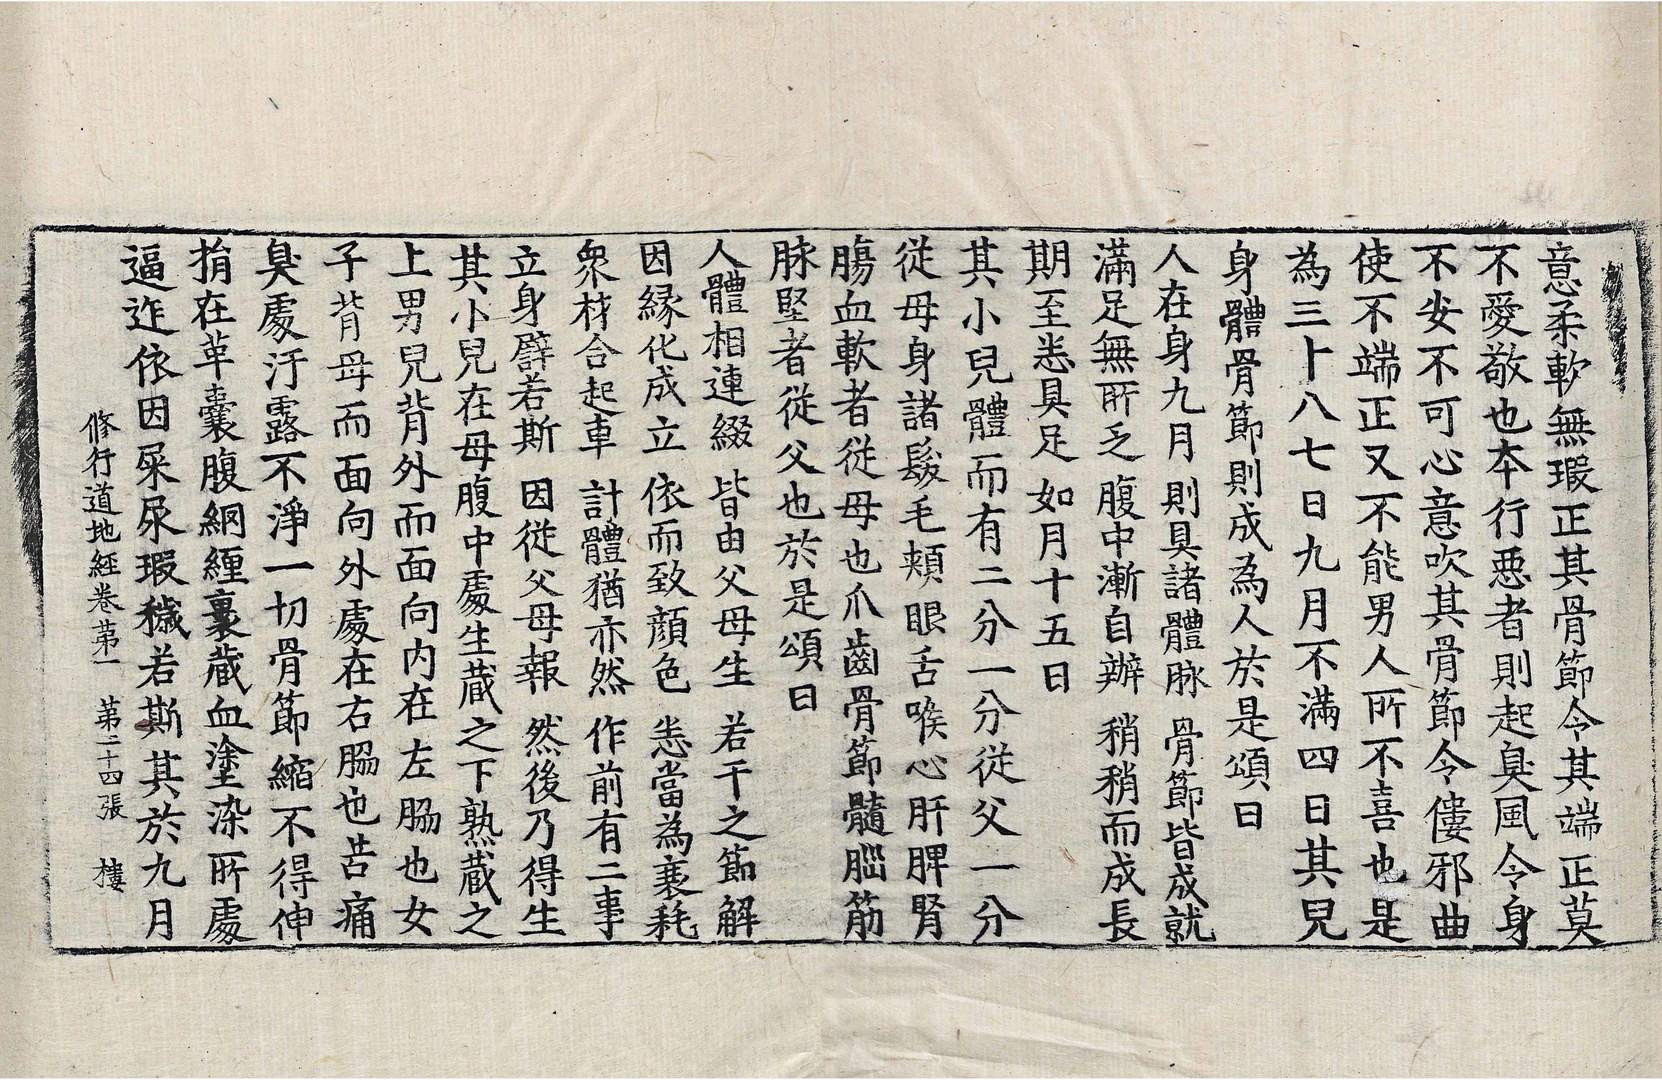 意柔軟無瑕正其骨節令其端正莫
不愛敬也本行惡者則起臭風令身
不安不可心意吹其骨節令僂邪曲
使不端正又不能男人所不喜也是
為三十八七日九月不滿四日其兒
身體骨節則成為人於是頌曰
人在身九月 則具諸體脉 骨節皆成就
滿足無所乏 腹中漸自辦 稍稍而成長
期至悉具足 如月十五日
其小兒體而有二分一分從父一分
從母身諸髮毛頰眼舌喉心肝脾腎
腸血軟者從母也爪齒骨節髓腦筋
脉堅者從父也於是頌曰
人體相連綴 皆由父母生 若干之節解
因縁化成立 依而致顔色 恙當為衰耗
衆材合起車 計體猶亦然 作前有二事
立身譬若斯 因從父母報 然後乃得生
其小兒在母腹中處生蔵之下熟蔵之
上男兒背外而面向内在左脇也女
子背母而面向外處在右脇也苦痛
臭處汙露不淨一切骨節縮不得伸
捐在革囊腹網纏裹蔵血塗染所處
逼迮依因屎尿瑕穢若斯其於九月
修行道地經卷第一 第二十四張 樓